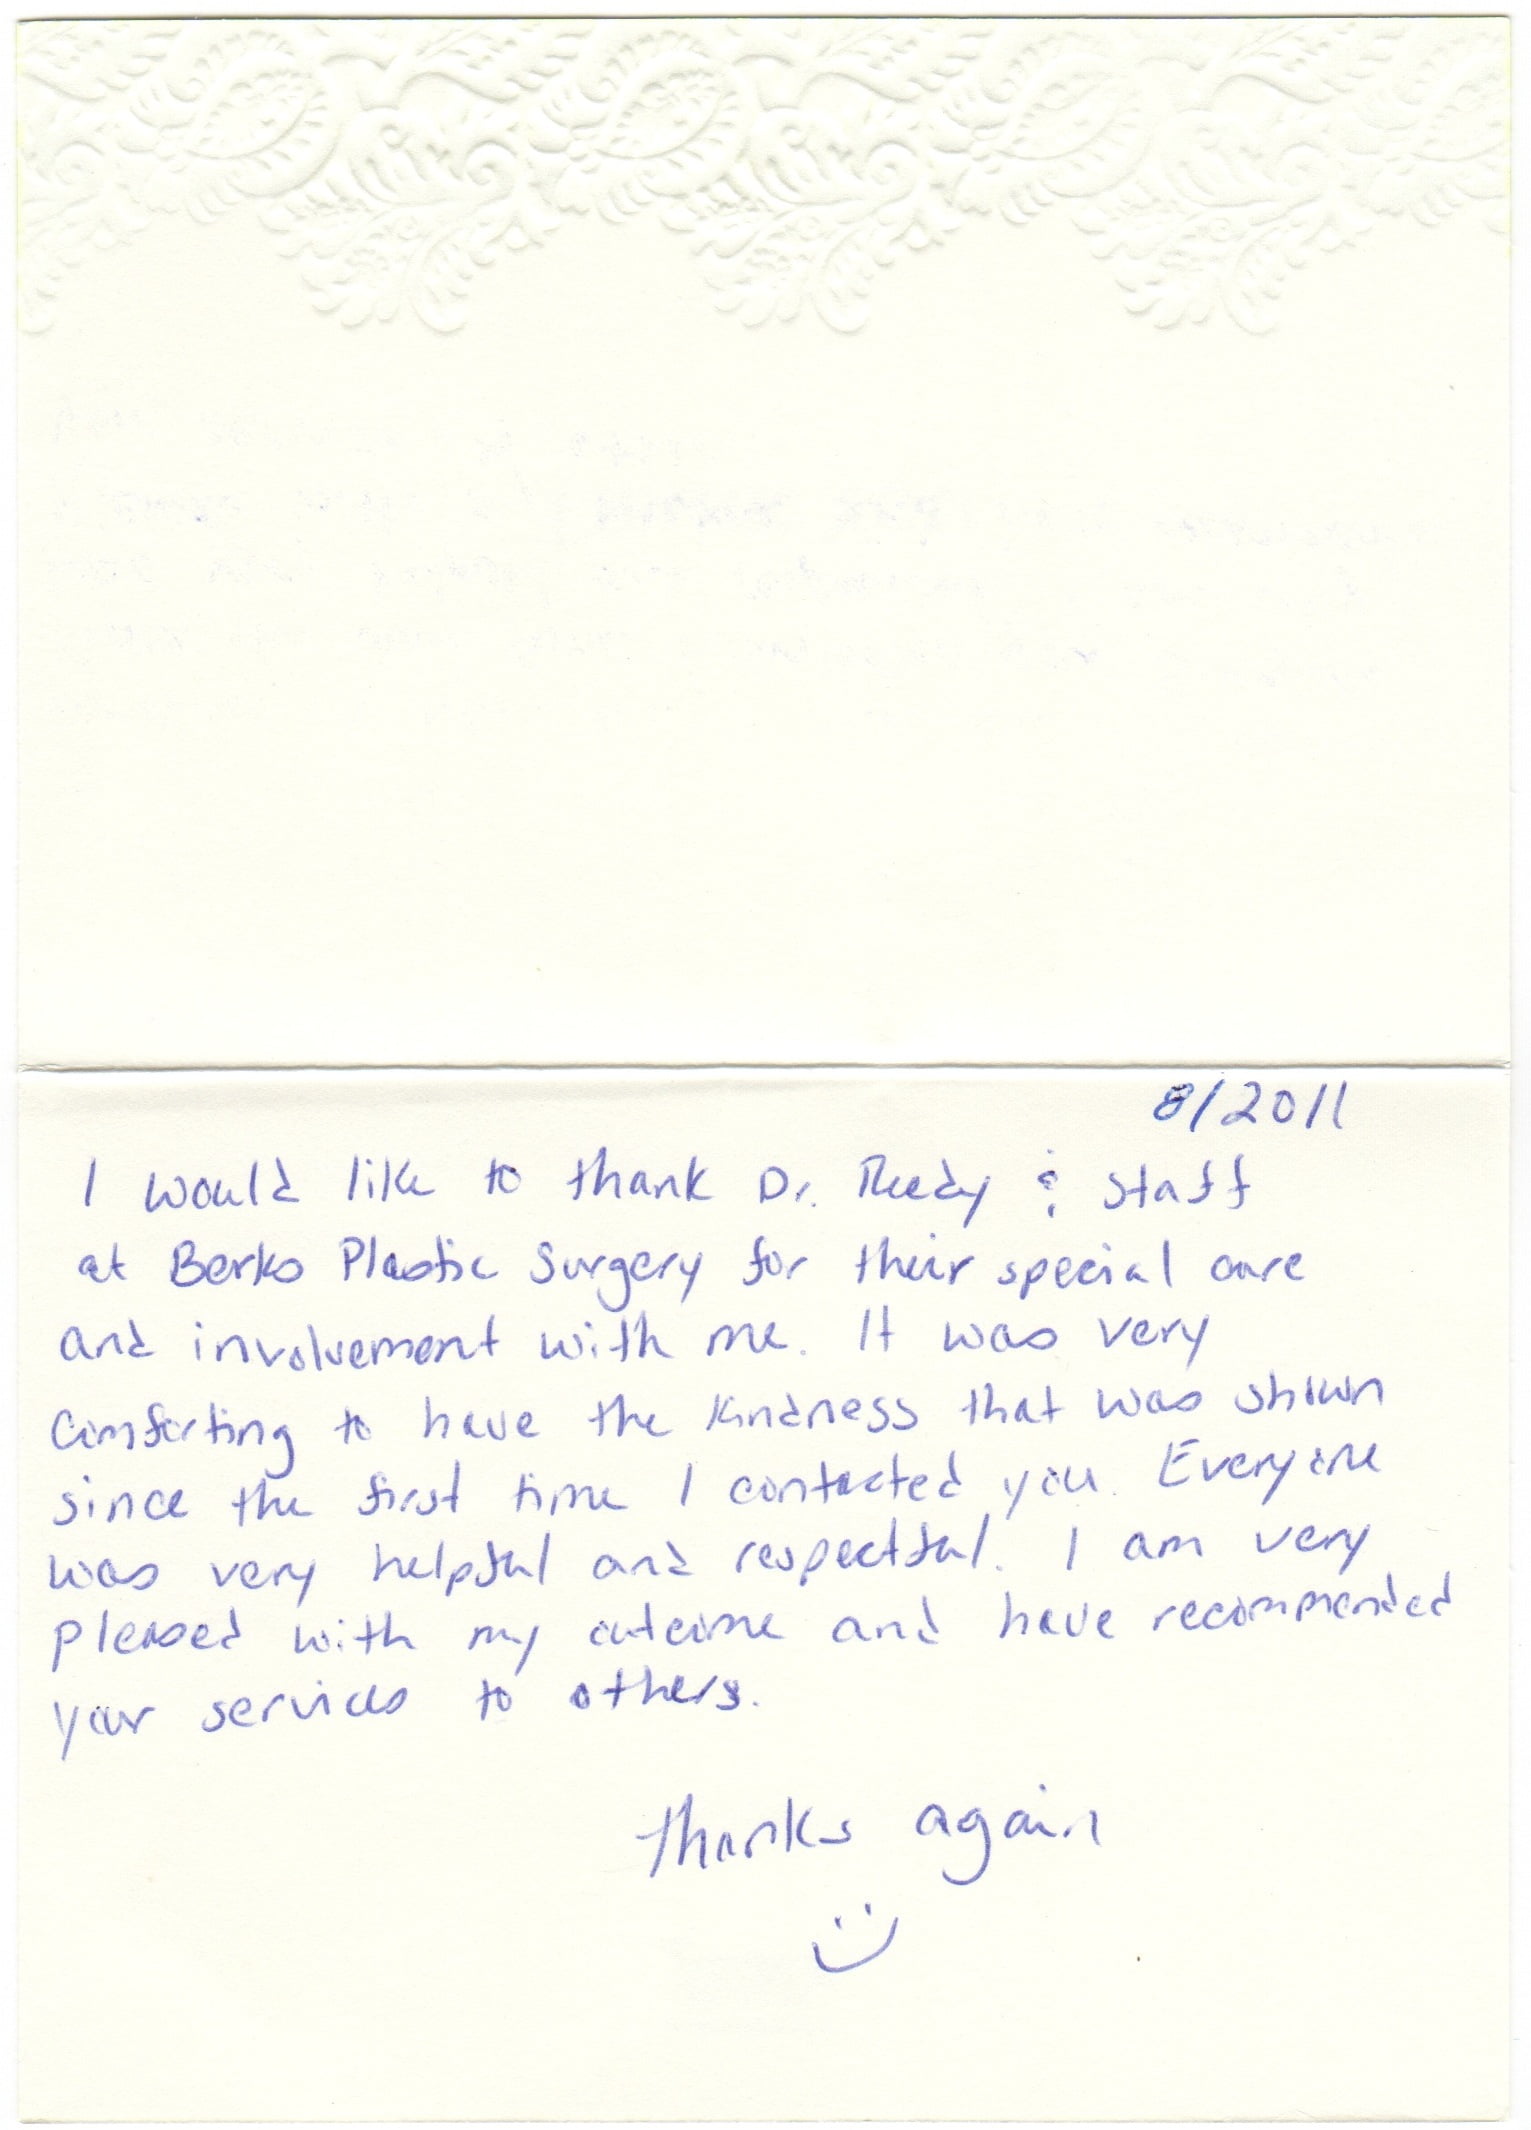 8/2011
I would like to thank Dr. Reedy & staff
at Berks Plastic Surgery for their special care
and involvement with me. It was very
comforting to have the kindness that was shown
since the first time I contacted you. Everyone
was very helpful and respectful. I am very
pleased with my outcome and have recommended
your services to others.
thanks again